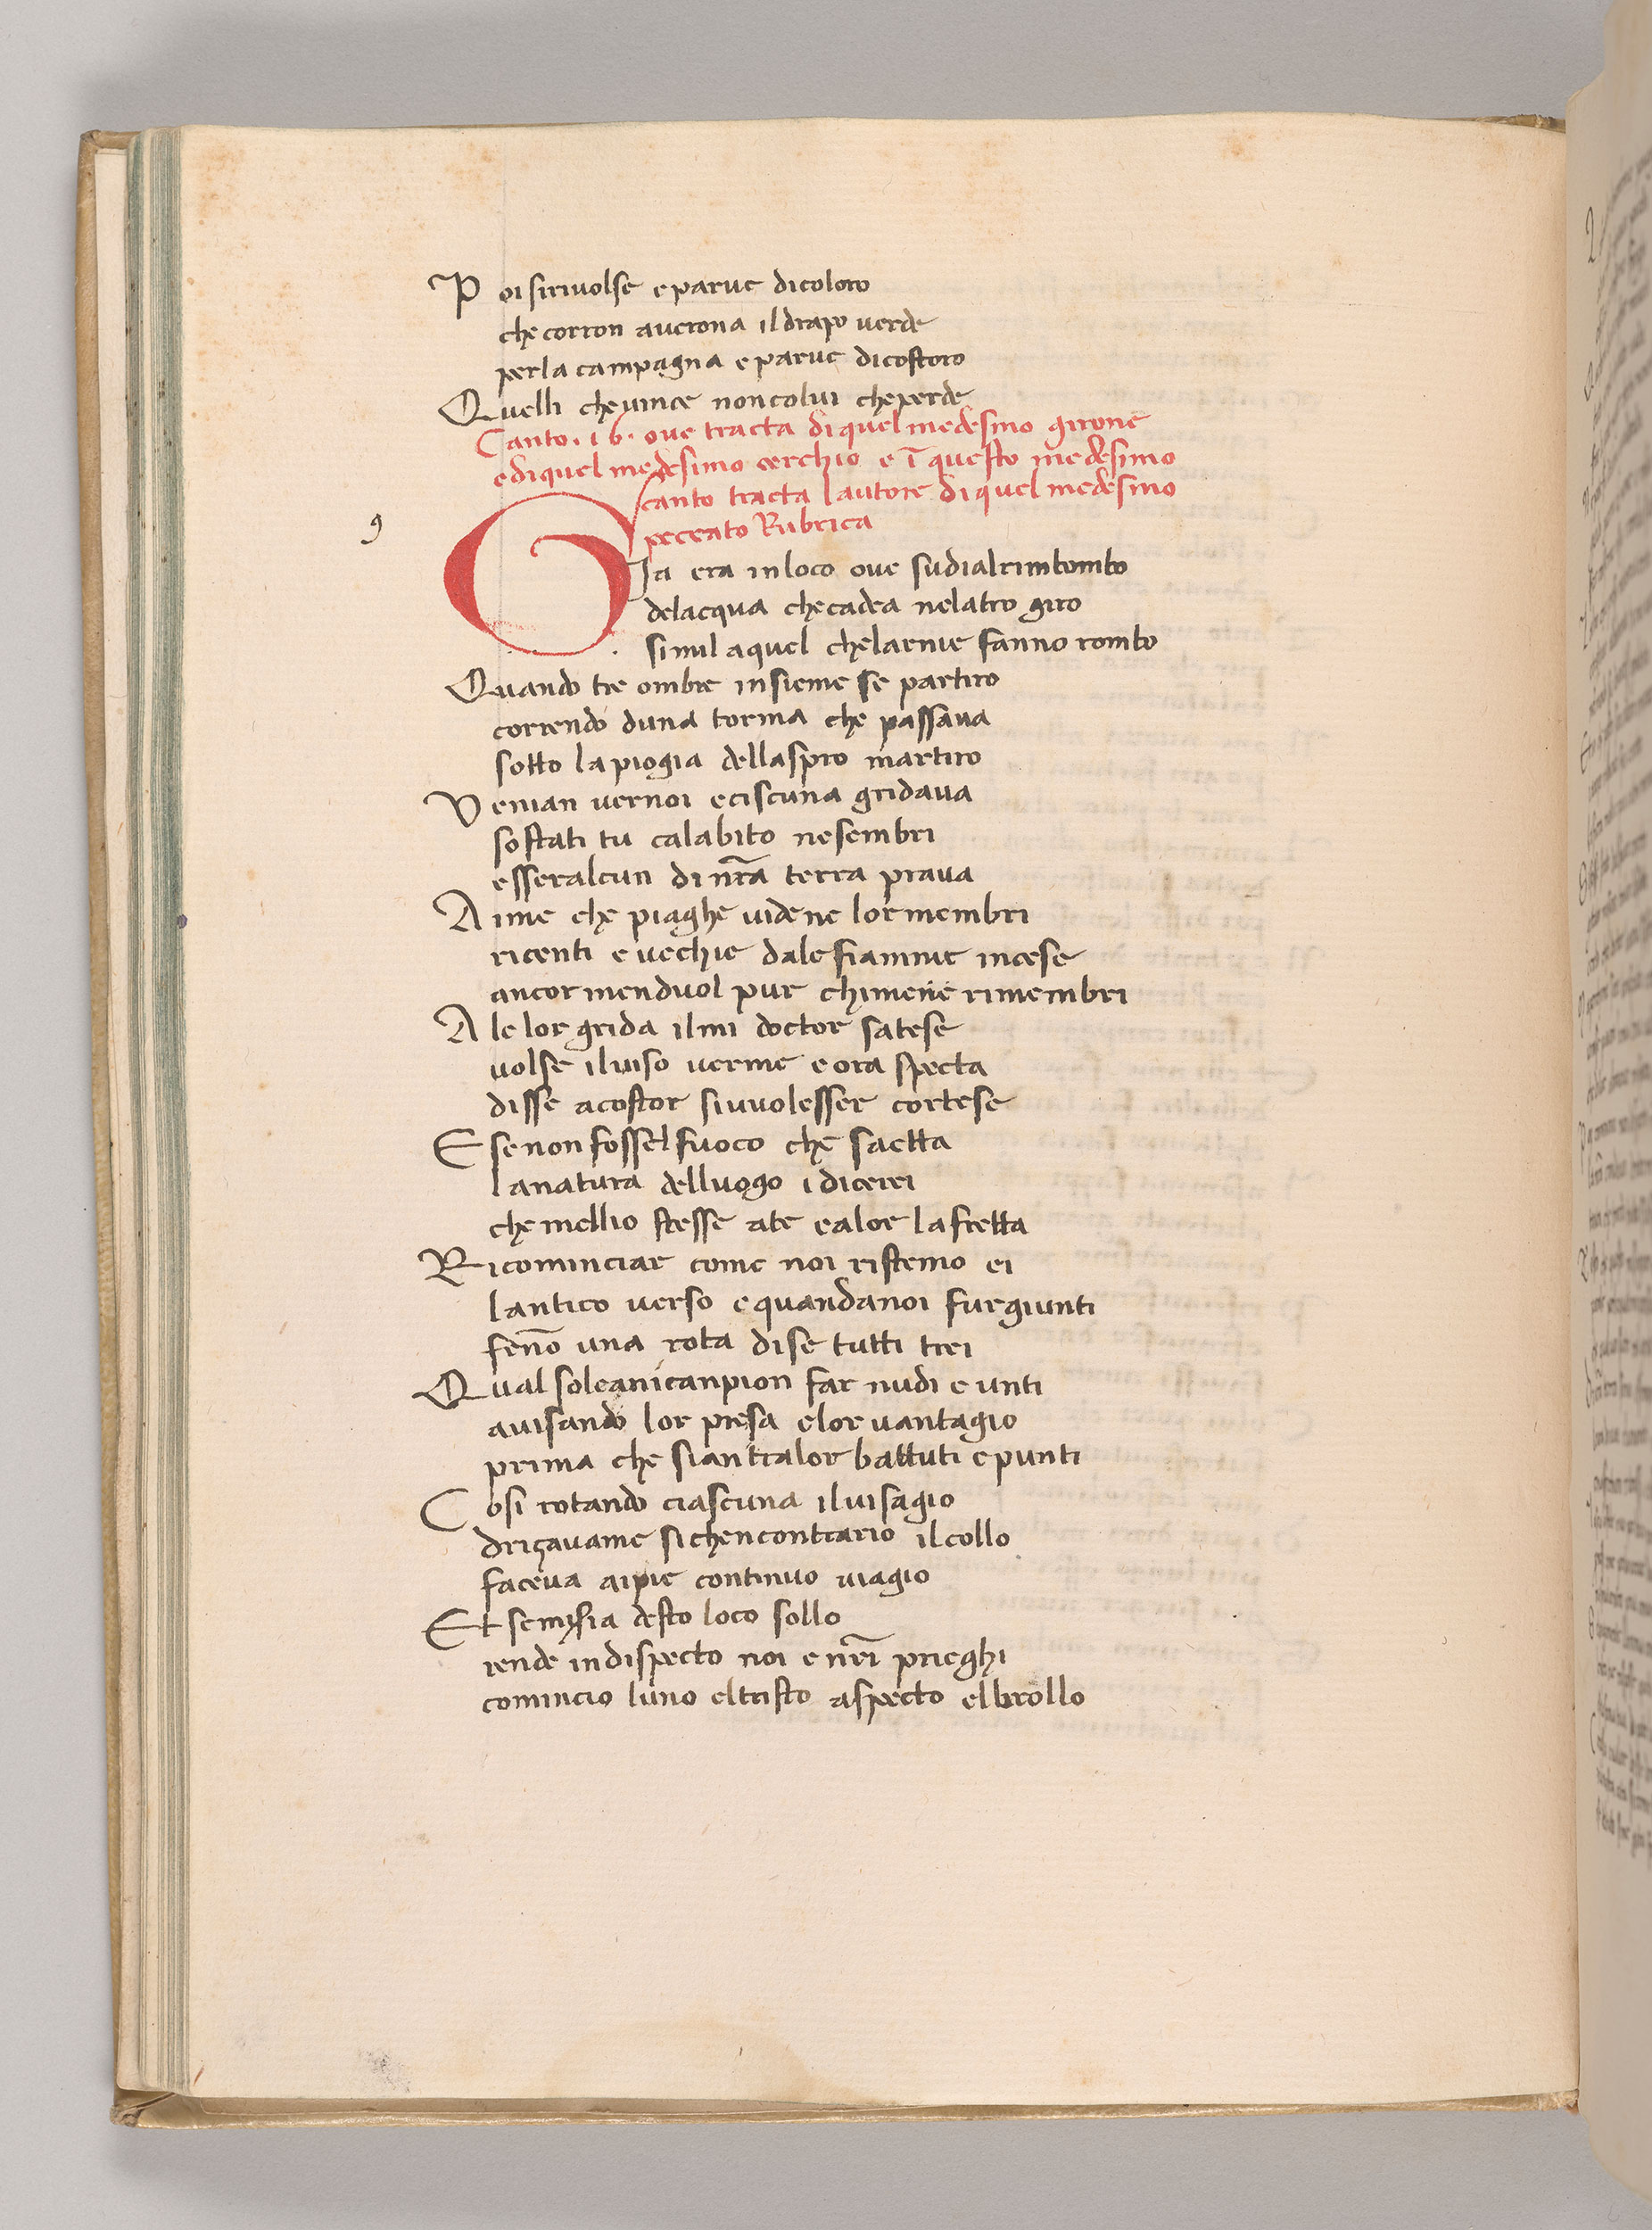 Poi sirivolse e parve dicoloro
che corron averona ildrapo verde
perla campagna e parve dicostoro
Quelli chevince noncolui cheperde
Canto .16. ove tracta di quel medesmo girone
ediquel medesimo cerchio e ī questo medesimo
canto tracta lautore di quel medesmo
peccato Rubrica
g
Gia era inloco ove sudialrimbombo
delacqua checadea nelatro giro
simil aquel chelarnie fanno rombo
Quando tre ombre insieme se partiro
correndo duna torma che passava
sotto lapiogia dellaspro martiro
Venian vernoi eciscuna gridava
sostati tu calabito nesembri
esseralcun di nr̄a terra prava
Aime che piaghe videne lormembri
ricenti e vechie dale fiamme incese
ancor menduol pur chimene rimembri
Ale lor grida ilmi doctor satese
volse ilviso verme e ora specta
disse acostor sivvolesser cortese
E senon fossel fuoco che saetta
lanatura delluogo i dicerei
che mellio stesse ate calor lafretta
Ricominciar come noi ristemo ei
lantico verso e quandanoi furgiunti
fenō una rota dise tutti trei
Qual soleanicanpion far nudi e unti
avisando lor presa elor vantagio
prima che siantralor battuti epunti
Cosi rotando ciascuna ilvisagio
driçavame sichencontrario ilcollo
faceva aipie continuo viagio
Et semisia desto loco sollo
rende indispecto noi e nr̄i prieghi
comincio luno eltristo aspecto elbrollo